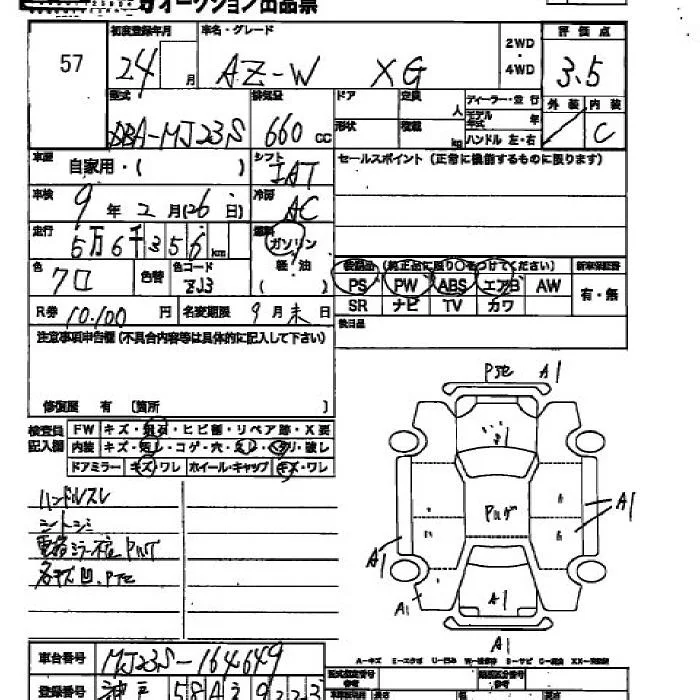 オークション出品票
57
初度登録年月 24 月
車名・グレード AZ-W XG
2WD・4WD
評価点 3.5
型式 DBA-MJ23S
排気量 660 cc
ドア 定員 人
形状 積載 kg
ディーラー・並行
モデル年式 年
ハンドル 左・右
外装 内装 C
車歴 自家用・( )
シフト IAT
セールスポイント(正常に機能するものに限ります)
車検 9年2月(26日)
冷房 AC
走行 5万6千356km
燃料 ガソリン 軽・油 ( )
色 クロ 色替 色コード ZJ3
装備品(純正品に限り○をつけてください)
新車保証書 有・無
PS PW ABS エアB AW
SR ナビ TV カワ
R券 10.100円 名変期限 9月末日
後日品
注意事項申告欄(不具合内容等は具体的に記入して下さい)
修復歴 有 [箇所 ]
検査員記入欄
FW キズ・飛石・ヒビ割・リペア跡・X要
内装 キズ・汚レ・コゲ・穴・スレ・ヘタリ・破レ
ドアミラー キズ・ワレ ホイール・キャップ キズ・ワレ
ハンドルスレ
シートシミ
各キズ凹、PTE
A1
A1
A1
A1
A1
A1
A-キズ E-エクボ U-凹み
車台番号 MJ23S-164649
登録番号 神戸 58